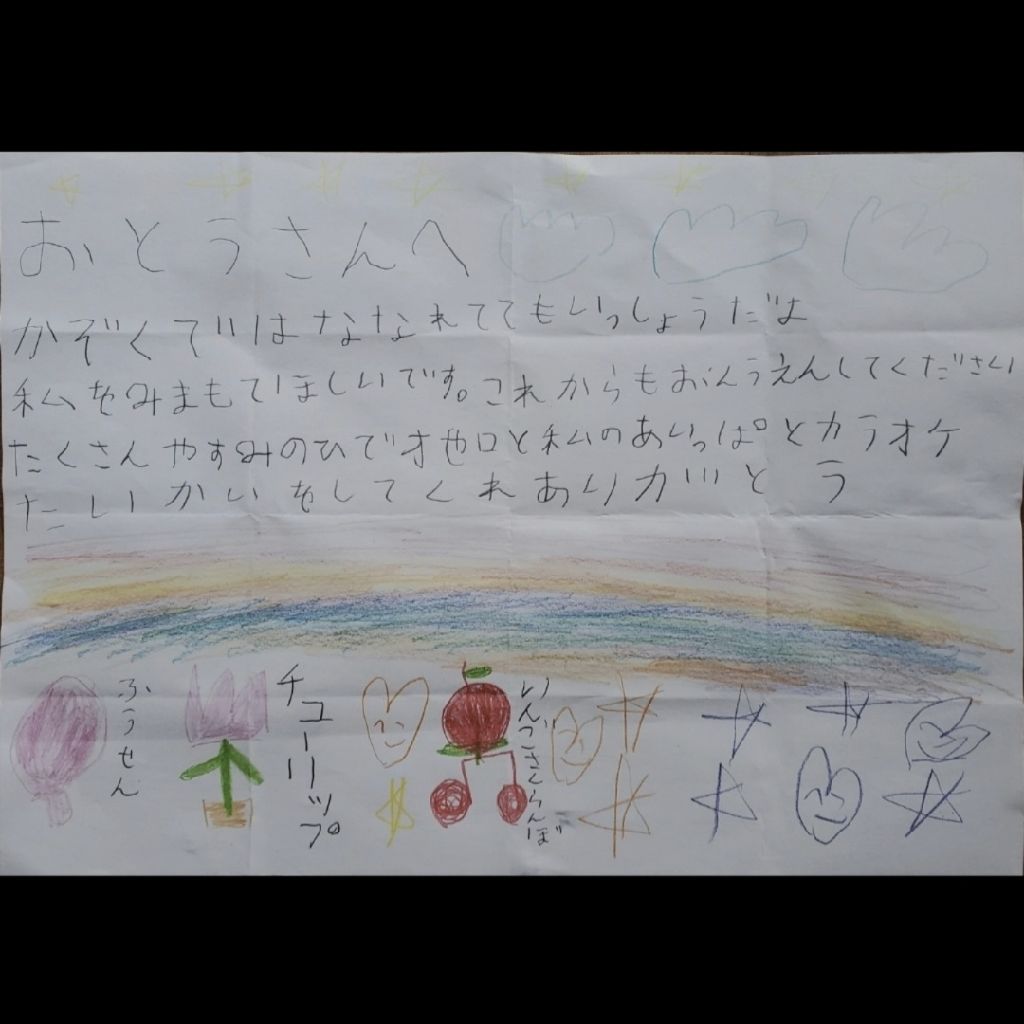 おとうさんへ
かぞくではななれててもいっしょうだよ
私をみまもてほしいです。これからもおんうえんしてください
たくさんやすみのひでオセロと私のあいっぱ°とカラオケ
たいかいをしてくれありがとう
ふうせん
チューリップ
りんごさくらんぼ